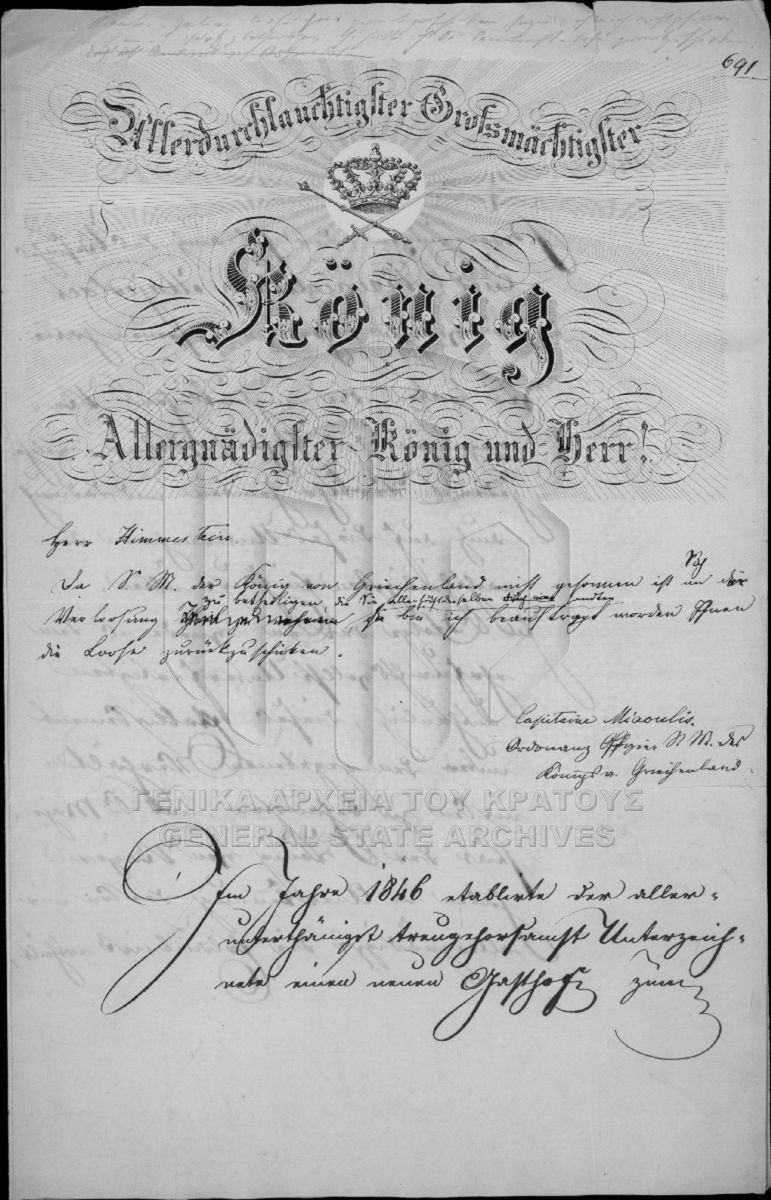 691
Allerdurchlauchtigster Grosmächtigster
König
Allergnädigster König und Herr!
Herr Himmelstein
Da S. M. der König von Griechenland nicht gesonnen ist sich an der
zu betheiligen die Sie allerhöchstdenselben sandten
Verloosung, so bin ich beauftragt worden Ihnen
die Loose zurückzuschicken.
Capitaine Miaoulis.
Ordonanz Offizier S. M. des
Königs v. Griechenland.
ΓΕΝΙΚΑ ΑΡΧΕΙΑ ΤΟΥ ΚΡΑΤΟΥΣ
GENERAL STATE ARCHIVES
Im Jahre 1846 etablirte der aller-
unterthänigst treugehorsamst Unterzeich-
nete einen neuen Gasthof zum